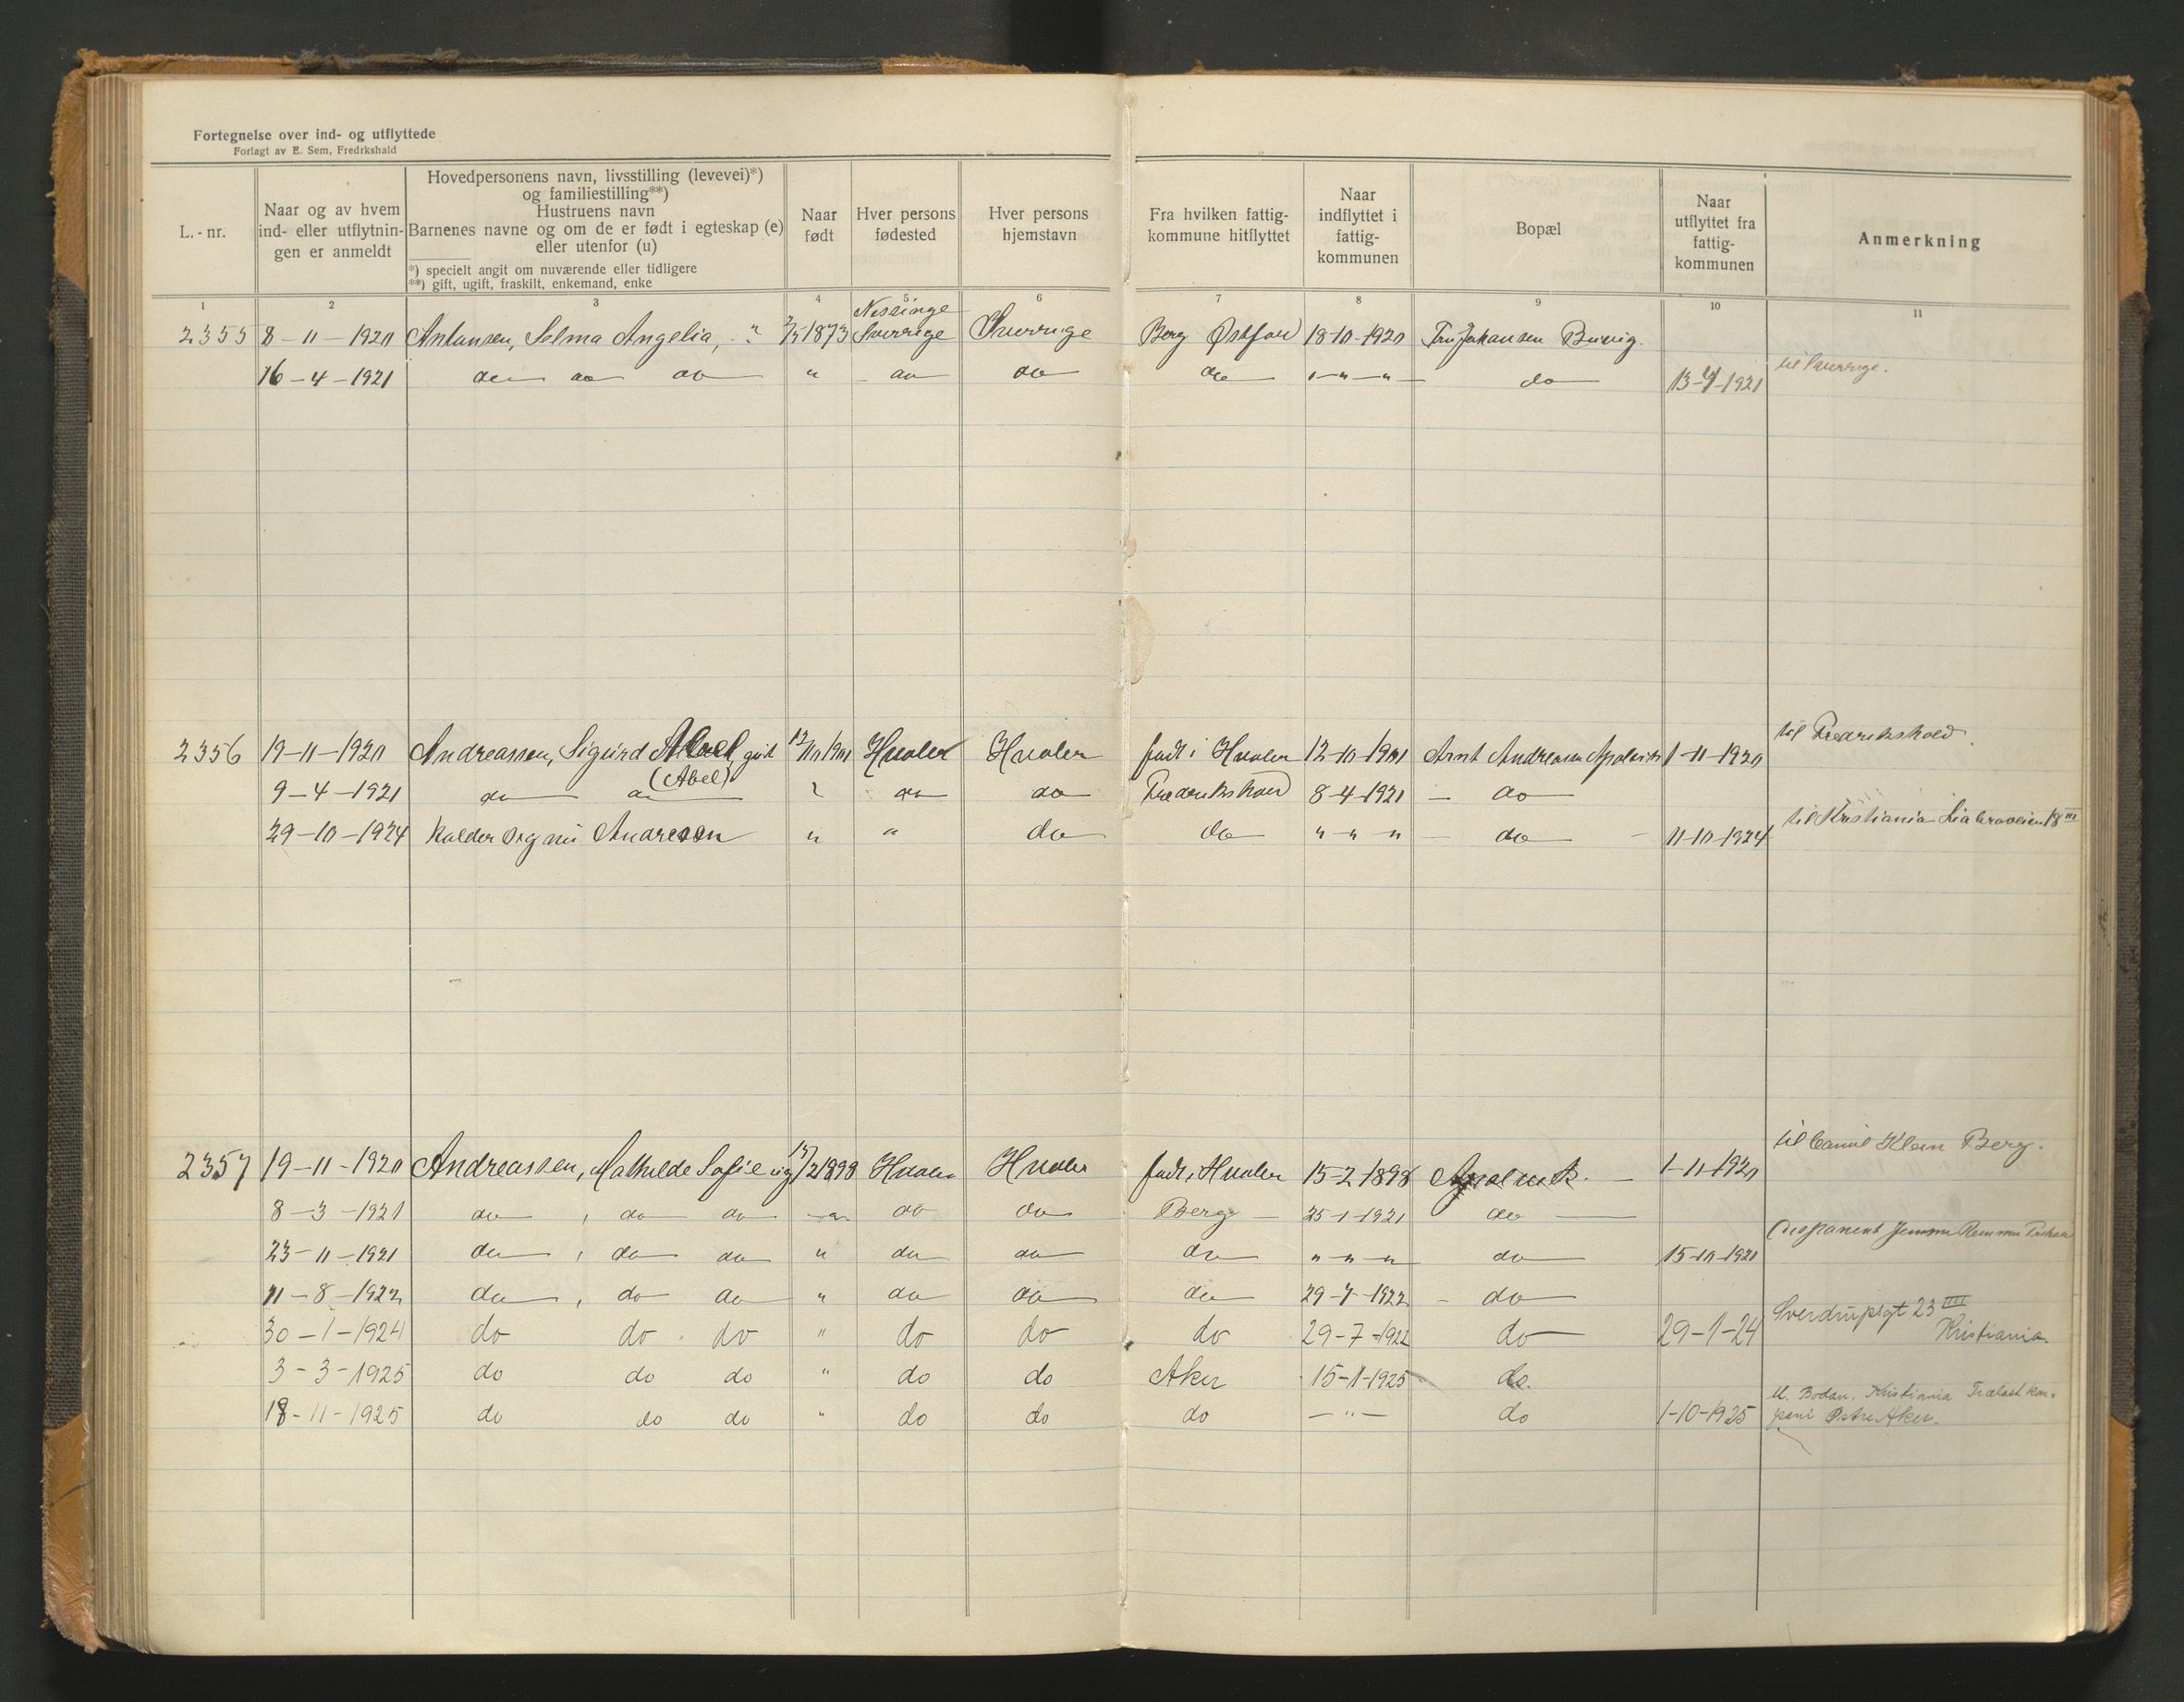 Fortegnelse over ind- og utflyttede
Forlagt av E. Sem, Fredrkshald
L.-nr.
Naar og av hvem ind- eller utflytnin- gen er anmeldt
Hovedpersonens navn, livsstilling (levevei)*) og familiestilling**)
Hustruens navn
Barnenes navne og om de er født i egteskap (e) eller utenfor (u)
*) specielt angit om nuværende eller tidligere
**) gift, ugift, fraskilt, enkemand, enke
Naar født
Hver persons fødested
Hver persons hjemstavn
Fra hvilken fattig- kommune hitflyttet
Naar indflyttet i fattig- kommunen
Bopæl
Naar utflyttet fra fattig- kommunen
Anmerkning
1 2 3 4 5 6 7 8 9 10 11
2355 8-11-1920 Antonsen, Selma Angelia, 1873 Sverrige Sverrige Berg Østfold 18-10-1920 Fru Johansen
16-4-1921 do do do " do do do "-"-" do 13-4-1921 til Sverrige.
2356 19-11-1920 Andreassen, Sigurd Abel, 12/10 1901 Hvaler Hvaler født i Hvaler 12-10-1901 Arnt Andreasen 1-11-1920 til Fredrikshald.
(Abel)
9-4-1921 do do " do do Fredrikshald 8-4-1921 - do
29-10-1924 kalder seg nu Andresen " " do do "-"-" do 11-10-1924 til Kristiania 18 III
2357 19-11-1920 Andreassen, Mathilde Sofie ug 15/2 1898 Hvaler Hvaler født i Hvaler 15-2-1898 1-11-1920 til Camil Klein Berg.
8-3-1921 do, do do " do do Berg 25-1-1921 do
23-11-1921 do, do do " do do do "-"-" do 15-10-1921 Disponent
11-8-1922 do, do do " do do do 29-7-1922 - do
30-1-1924 do do do " do do do 29-7-1922 do 29-1-24 Sverdrupsgt 23 IIII Kristiania.
3-3-1925 do do do " do do Aker 15-1-1925 do.
18-11-1925 do do do " do do do -"- do 1-10-1925 Kristiania Trælast kom-
pani Østre Aker.